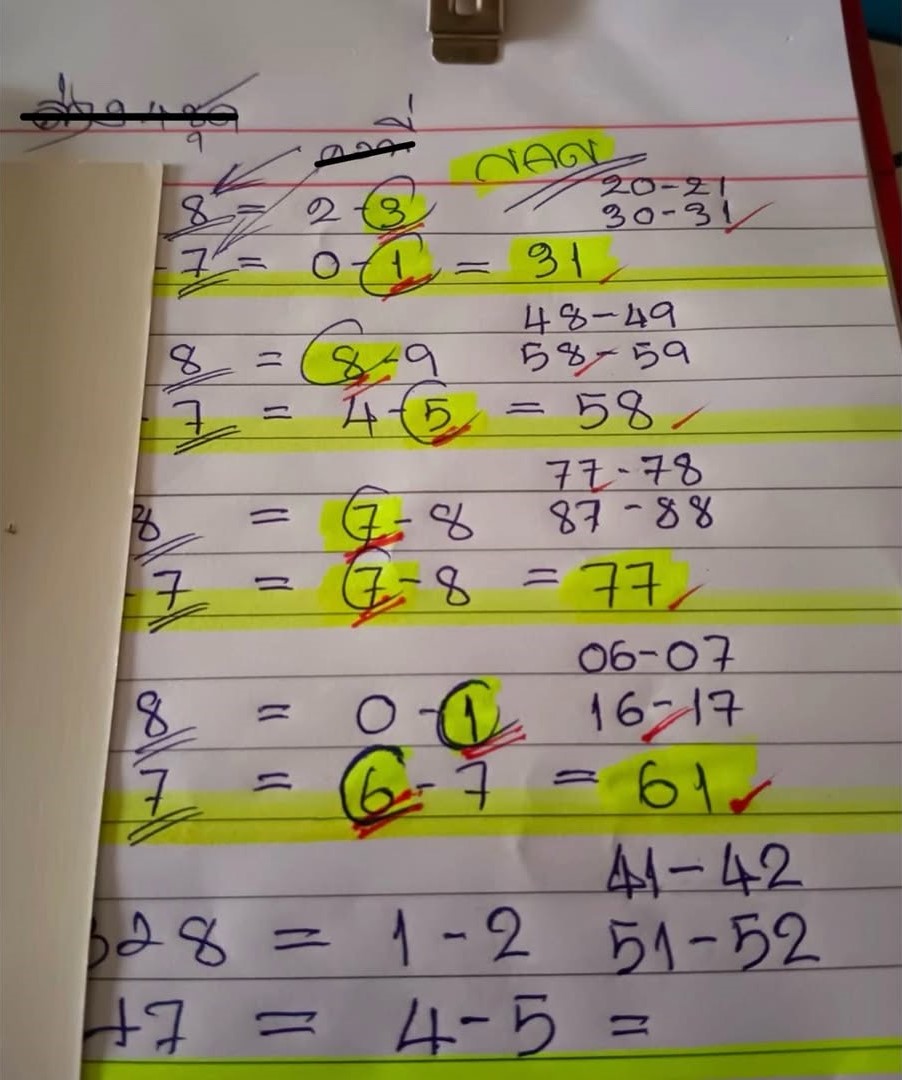 9
20-21
8 = 2-3 30-31
7 = 0-1 = 31
48-49
8 = 8-9 58-59
7 = 4-5 = 58
77-78
8 = 7-8 87-88
7 = 7-8 = 77
06-07
8 = 0-1 16-17
7 = 6-7 = 61
41-42
28 = 1-2 51-52
+7 = 4-5 =